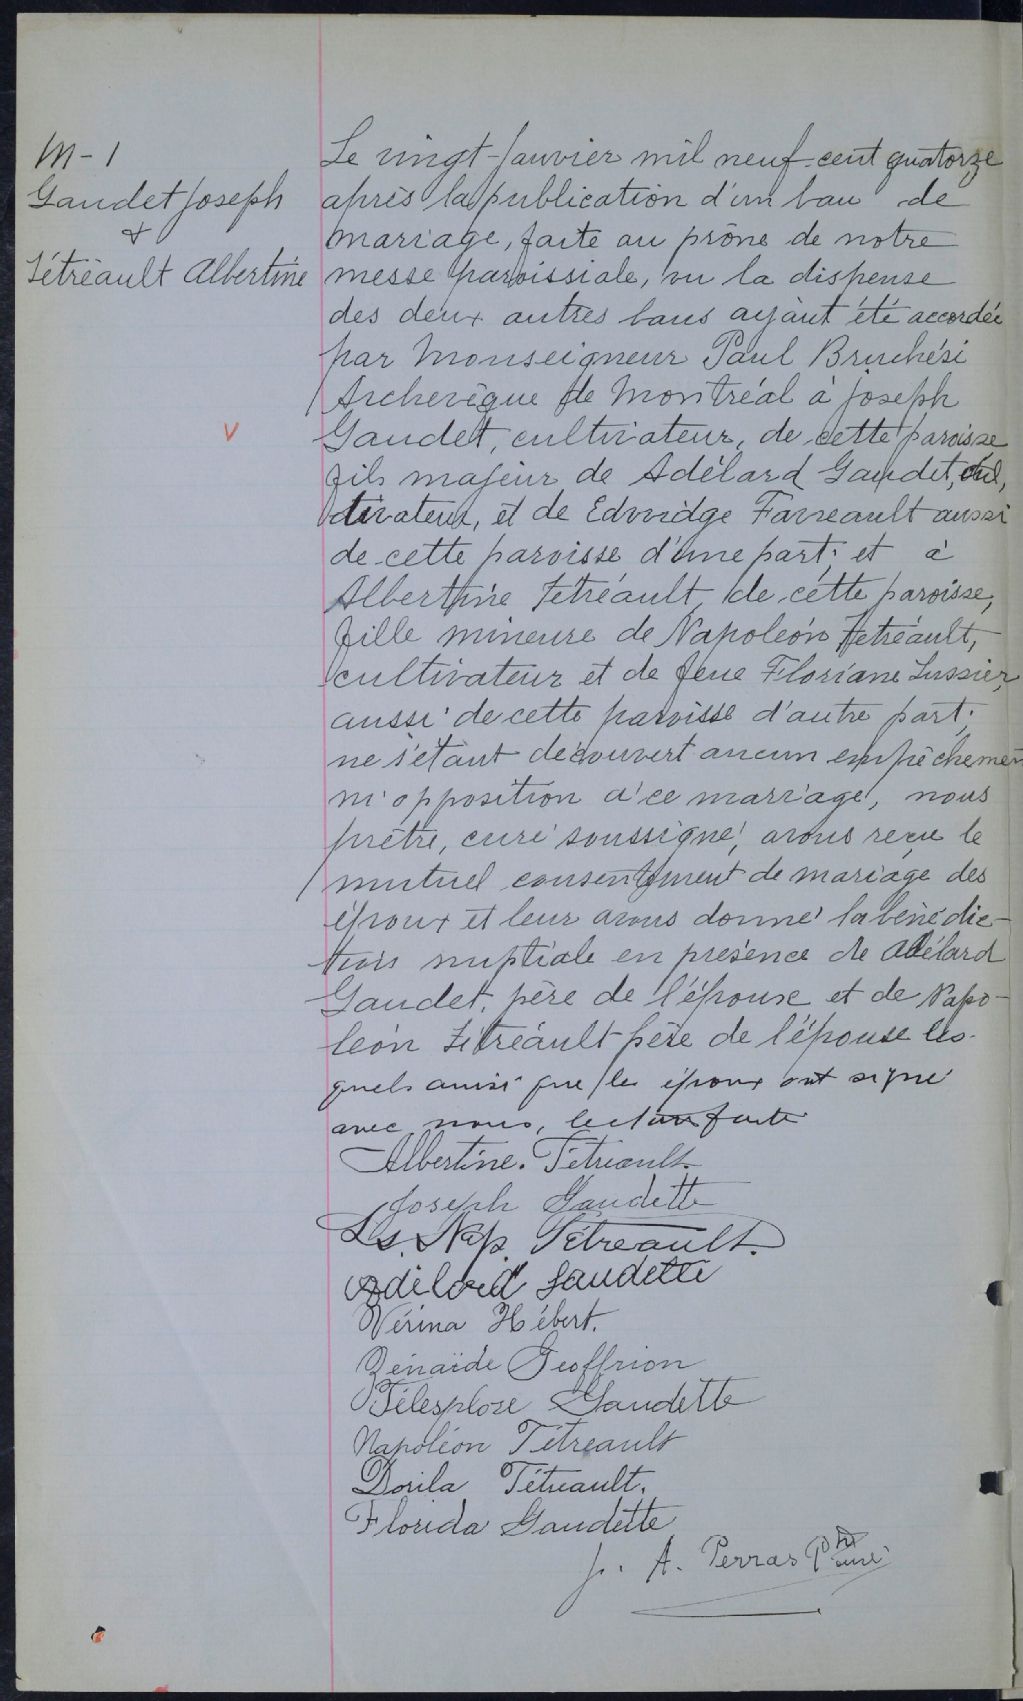 M-1
Gaudet Joseph
&
Tétréault Albertine
Le vingt Janvier mil neuf-cent quatorze
après la publication d'un ban de
mariage, faite au prône de notre
messe paroissiale, vu la dispense
des deux autres bans ayant été accordée
par Monseigneur Paul Bruchési
Archevêque de Montréal à Joseph
Gaudet, cultivateur, de cette paroisse
fils majeur de Adélard Gaudet, cul,
tivateur, et de Edwidge Favreault aussi
de cette paroisse d'une part; et à
Albertine Tétréault, de cette paroisse,
fille mineure de Napoléon Tétréault,
cultivateur et de feue Floriane Lussier,
aussi de cette paroisse d'autre part;
ne s'étant découvert aucun empêchement
ni opposition à ce mariage, nous
prêtre, curé soussigné, avons reçu le
mutuel consentement de mariage des
époux et leur avons donné la bénédic-
tion nuptiale en présence de Adélard
Gaudet, père de l'épouse et de Napo-
léon Tétréault père de l'épouse les-
quels ainsi que les époux ont signé
avec nous, lecture faite
Albertine. Tétreault
Joseph Gaudette
Ls. Nap. Tétreault.
Adélard Gaudette
Vérina Hébert.
Zénaïde Geoffrion
Télesphore Gaudette
Napoléon Tétreault
Dorila Tétreault.
Florida Gaudette
J. A. Perras Ptre
curé